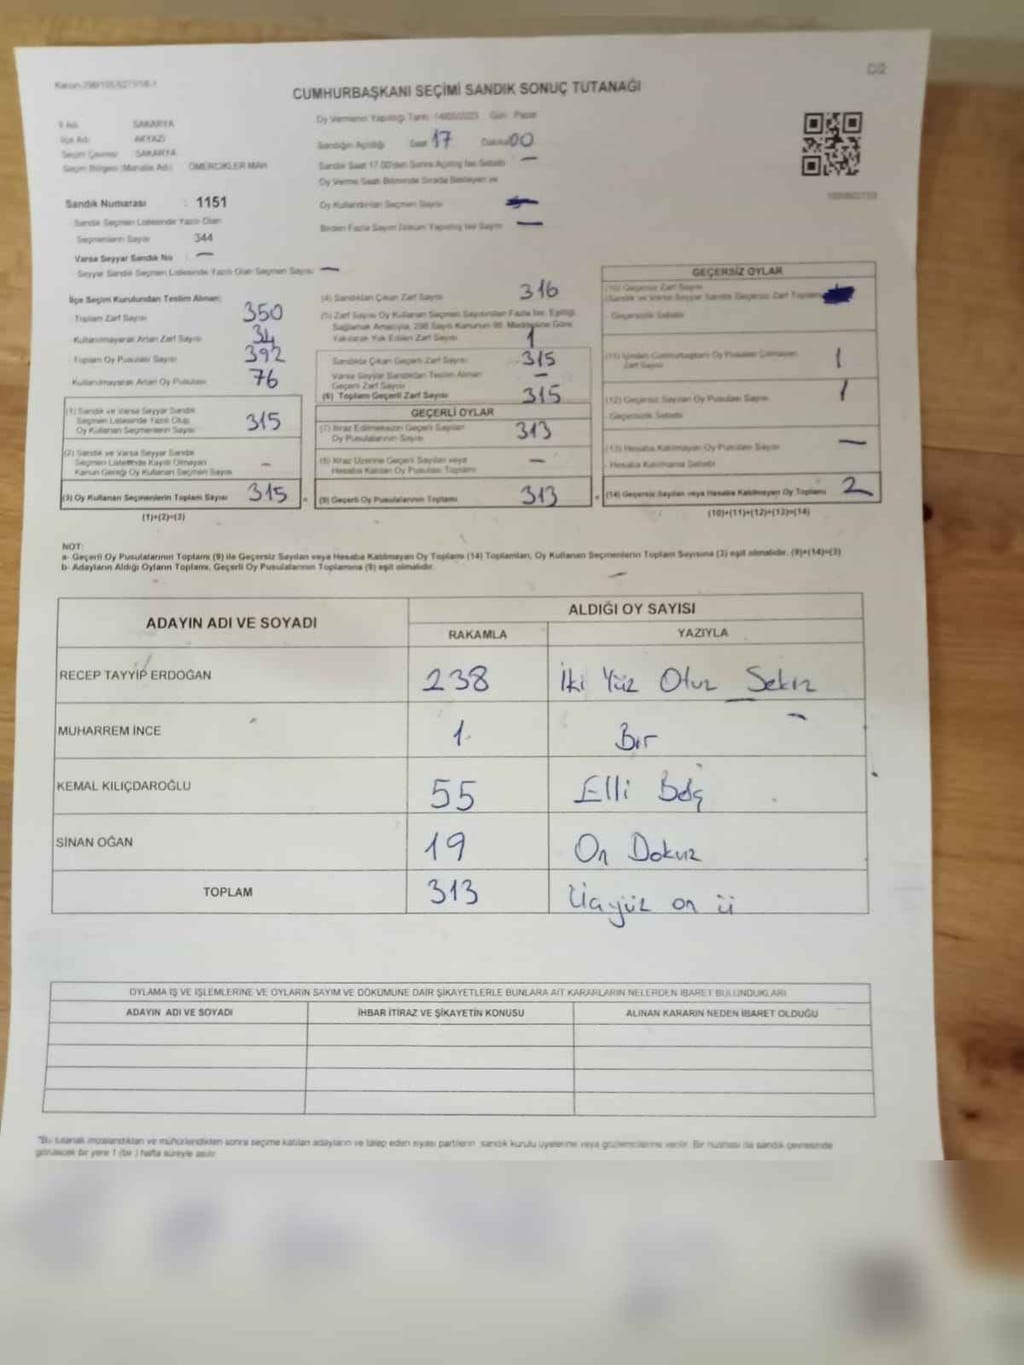 D/2
CUMHURBAŞKANI SEÇİMİ SANDIK SONUÇ TUTANAĞI
İl Adı SAKARYA
İlçe Adı AKYAZI
Seçim Çevresi SAKARYA
Seçim Bölgesi (Mahalle Adı) ÖMERCİKLER MAH
Oy Vermenin Yapıldığı Tarih: 14/05/2023 Gün: Pazar
Sandığın Açıldığı Saat 17 Dakika 00
Sandık Saat 17.00'den Sonra Açılmış İse Sebebi —
Oy Verme Saati Bitiminde Sırada Bekleyen ve
Oy Kullandırılan Seçmen Sayısı
Birden Fazla Sayım Döküm Yapılmış İse Sayısı —
Sandık Numarası : 1151
Sandık Seçmen Listesinde Yazılı Olan
Seçmenlerin Sayısı 344
Varsa Seyyar Sandık No —
Seyyar Sandık Seçmen Listesinde Yazılı Olan Seçmen Sayısı —
İlçe Seçim Kurulundan Teslim Alınan:
Toplam Zarf Sayısı 350
Kullanılmayarak Artan Zarf Sayısı 34
Toplam Oy Pusulası Sayısı 392
Kullanılmayarak Artan Oy Pusulası 76
(1) Sandık ve Varsa Seyyar Sandık
Seçmen Listesinde Yazılı Olup
Oy Kullanan Seçmenlerin Sayısı 315
(2) Sandık ve Varsa Seyyar Sandık
Seçmen Listesinde Kayıtlı Olmayan
Kanun Gereği Oy Kullanan Seçmen Sayısı —
(3) Oy Kullanan Seçmenlerin Toplam Sayısı 315
(1)+(2)=(3)
(4) Sandıktan Çıkan Zarf Sayısı 316
(5) Zarf Sayısı Oy Kullanan Seçmen Sayısından Fazla İse, Eşitliği
Sağlamak Amacıyla, 298 Sayılı Kanunun 98. Maddesine Göre
Yakılarak Yok Edilen Zarf Sayısı 1
Sandıkta Çıkan Geçerli Zarf Sayısı 315
Varsa Seyyar Sandıktan Teslim Alınan
Geçerli Zarf Sayısı —
(6) Toplam Geçerli Zarf Sayısı 315
GEÇERLİ OYLAR
(7) İtiraz Edilmeksizin Geçerli Sayılan
Oy Pusulalarının Sayısı 313
(8) İtiraz Üzerine Geçerli Sayılan veya
Hesaba Katılan Oy Pusulası Toplamı —
(9) Geçerli Oy Pusulalarının Toplamı 313
GEÇERSİZ OYLAR
(10) Geçersiz Zarf Sayısı
(Sandık ve Varsa Seyyar Sandık Geçersiz Zarf Toplamı)
Geçersizlik Sebebi
(11) İçinden Cumhurbaşkanı Oy Pusulası Çıkmayan
Zarf Sayısı 1
(12) Geçersiz Sayılan Oy Pusulası Sayısı 1
Geçersizlik Sebebi
(13) Hesaba Katılmayan Oy Pusulası Sayısı —
Hesaba Katılmama Sebebi
(14) Geçersiz Sayılan veya Hesaba Katılmayan Oy Toplamı 2
(10)+(11)+(12)+(13)=(14)
NOT:
a- Geçerli Oy Pusulalarının Toplamı (9) ile Geçersiz Sayılan veya Hesaba Katılmayan Oy Toplamı (14) Toplamları, Oy Kullanan Seçmenlerin Toplam Sayısına (3) eşit olmalıdır. (9)+(14)=(3)
b- Adayların Aldığı Oyların Toplamı, Geçerli Oy Pusulalarının Toplamına (9) eşit olmalıdır.
ADAYIN ADI VE SOYADI ALDIĞI OY SAYISI
RAKAMLA YAZIYLA
RECEP TAYYİP ERDOĞAN 238 İki Yüz Otuz Sekiz
MUHARREM İNCE 1 Bir
KEMAL KILIÇDAROĞLU 55 Elli Beş
SİNAN OĞAN 19 On Dokuz
TOPLAM 313 Üçyüz on ü
OYLAMA İŞ VE İŞLEMLERİNE VE OYLARIN SAYIM VE DÖKÜMÜNE DAİR ŞİKAYETLERLE BUNLARA AİT KARARLARIN NELERDEN İBARET BULUNDUKLARI
ADAYIN ADI VE SOYADI İHBAR İTİRAZ VE ŞİKAYETİN KONUSU ALINAN KARARIN NEDEN İBARET OLDUĞU
*Bu tutanak imzalandıktan ve mühürlendikten sonra seçime katılan adayların ve talep eden siyasi partilerin sandık kurulu üyelerine veya gözlemcilerine verilir. Bir nüshası da sandık çevresinde
görülecek bir yere 1 (bir) hafta süreyle asılır.